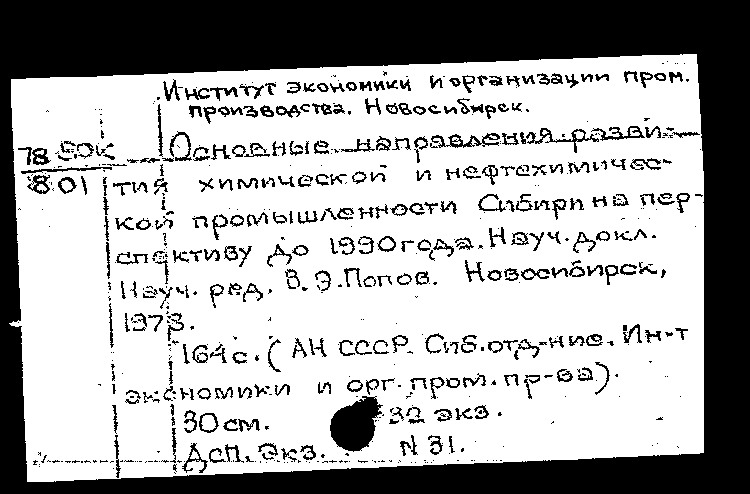 Институт экономики и организации пром.
производства. Новосибирск.
78 ЕОК Основные направления разви-
801 тия химической и нефтехимичес-
кой промышленности Сибири на пер-
спективу до 1990 года. Науч. докл.
Науч. ред. В. Э. Попов. Новосибирск,
1978.
164 с. (АН СССР. Сиб. отд-ние. Ин-т
экономики и орг. пром. пр-ва).
30 см. 32 экз.
Дсп. Экз. N 31.